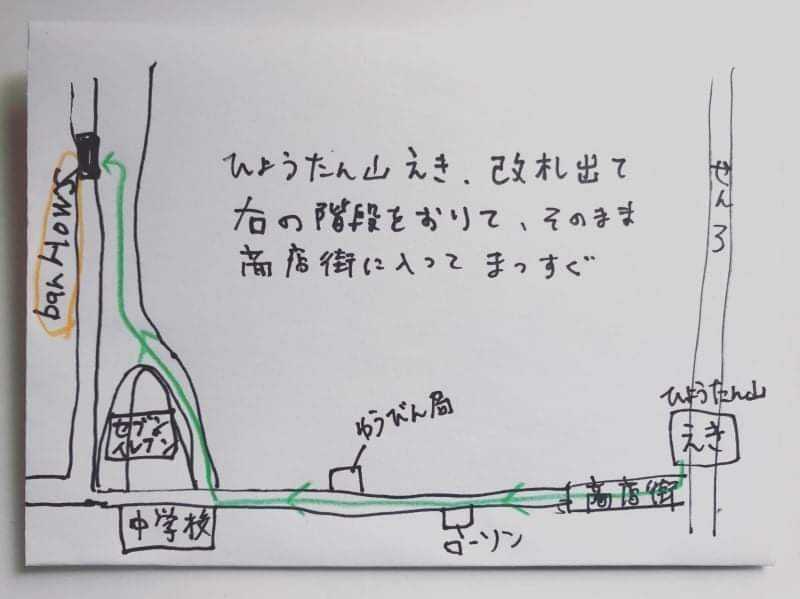 ひょうたん山えき、改札出て
右の階段をおりて、そのまま
商店街に入って まっすぐ
せんろ
ひょうたん山
えき
商店街
ゆうびん局
ローソン
セブン
イレブン
中学校